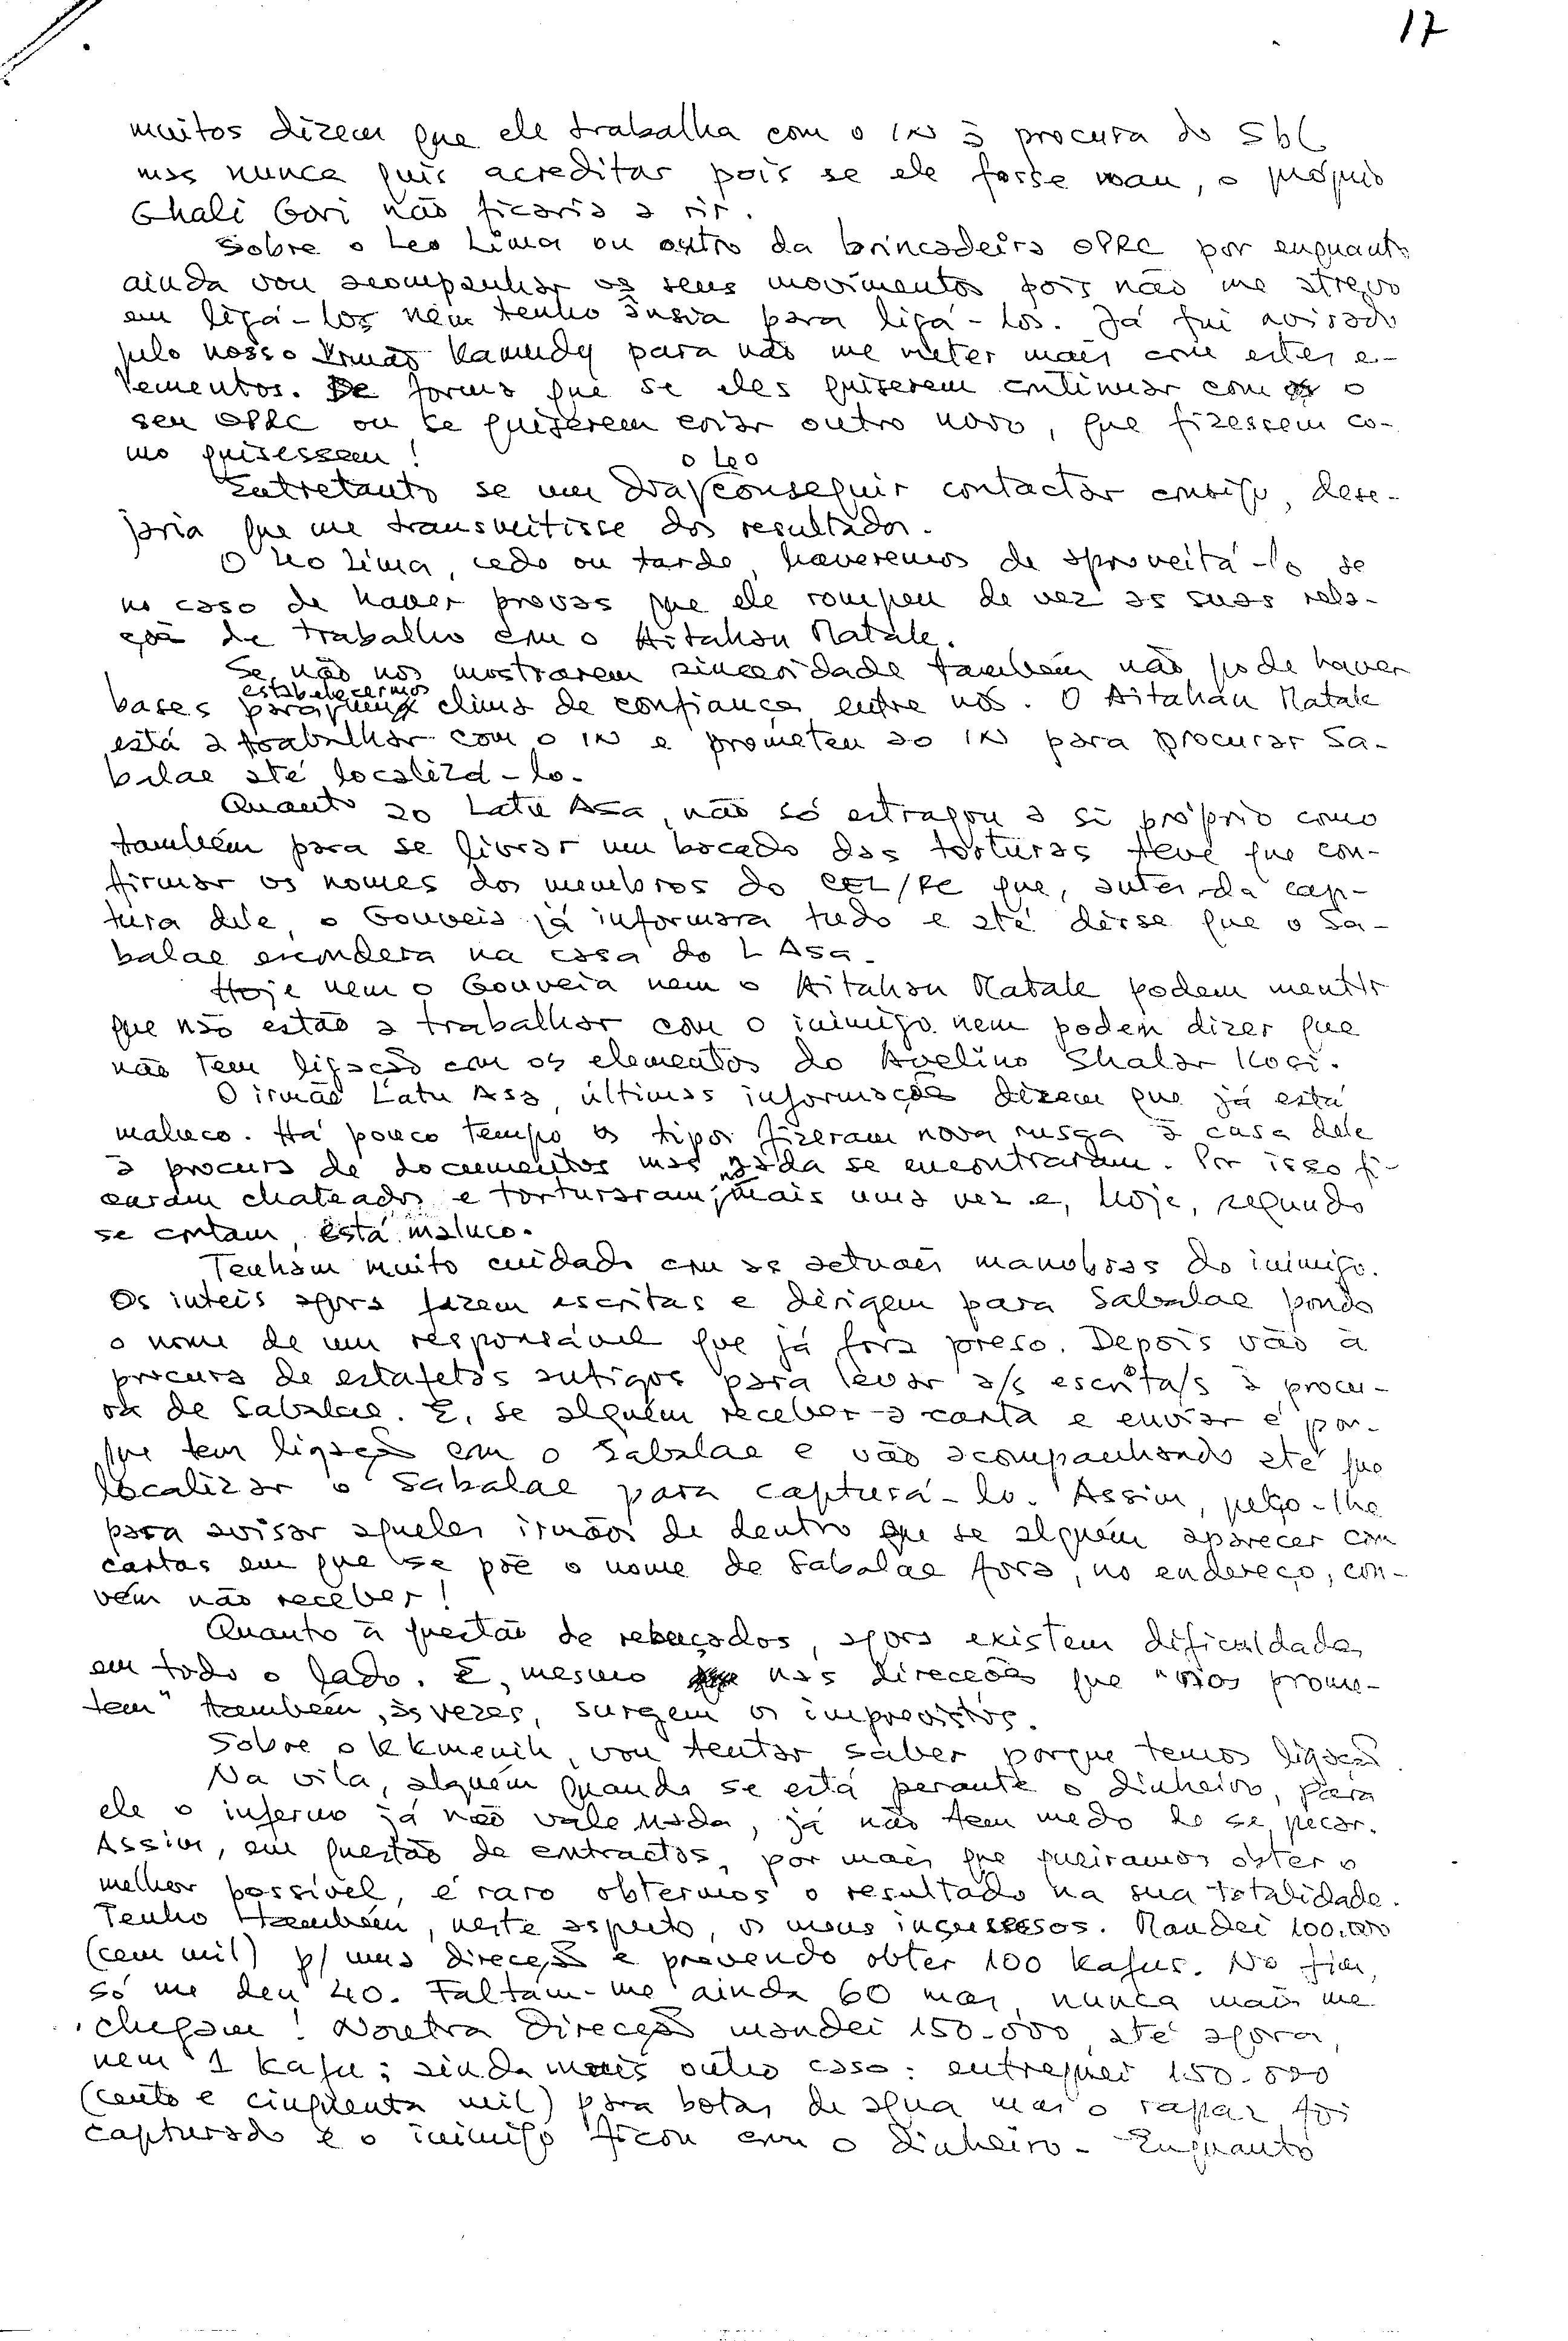 17
muitos dizem que ele trabalha com o IN à procura do Sbl
mas nunca quis acreditar pois se ele fosse mau, o próprio
Ghali Gori não ficaria a rir.
Sobre o Leo Lima ou outro da brincadeira OPRC por enquanto
ainda vou acompanhar os seus movimentos pois não me atrevo
em ligá-los nem tenho ânsia para ligá-los. Já fui avisado
pelo nosso Irmão Kamudy para não me meter mais com estes e-
lementos. De forma que se eles quiserem continuar com o
seu OPRC ou se quiserem criar outro novo, que fizessem co-
mo quisessem!
Entretanto se um dia o Leo conseguir contactar consigo, dese-
jaria que me transmitisse dos resultados.
O Leo Lima, cedo ou tarde, haveremos de aproveitá-lo se
no caso de haver provas que ele rompeu de vez as suas rela-
ções de trabalho com o Aitahan Matak.
Se não nos mostrarem sinceridade também não pode haver
bases para estabelecermos clima de confiança entre nós. O Aitahan Matak
está a trabalhar com o IN e prometeu ao IN para procurar Sa-
balae até localizá-lo.
Quanto ao Latu Asa, não só estragou a si próprio como
também para se livrar um bocado das torturas teve que con-
firmar os nomes dos membros do CEL/FC que, antes da cap-
tura dele, o Gouveia já informara tudo e até disse que o Sa-
balae escondera na casa do L Asa.
Hoje nem o Gouveia nem o Aitahan Matak podem mentir
que não estão a trabalhar com o inimigo nem podem dizer que
não tem ligação com os elementos do Avelino Shalar Kosi.
O irmão Latu Asa, últimas informações dizem que já está
maluco. Há pouco tempo os tipos fizeram nova rusga à casa dele
à procura de documentos mas nada se encontraram. Por isso fi-
caram chateados e torturaram mais uma vez e, hoje, segundo
se contam, está maluco.
Tenham muito cuidado com as actuais manobras do inimigo.
Os inteis agora fazem escritas e dirigem para Sabalae pondo
o nome de um responsável que já fora preso. Depois vão à
procura de estafetas antigos para levar a/s escrita/s à procu-
ra de Sabalae. E, se alguém receber a carta e enviar é por-
que tem ligação com o Sabalae e vão acompanhando até que
localizar o Sabalae para capturá-lo. Assim, peço-lhe
para avisar aqueles irmãos de dentro que se alguém aparecer com
cartas em que se põe o nome de Sabalae fora, no endereço, con-
vém não receber!
Quanto à questão de rebuçados, agora existem dificuldades
em todo o lado. E, mesmo nas direcções que "nos prome-
tem" também, às vezes, surgem os imprevistos.
Sobre o kkmenih, vou tentar saber porque temos ligação
Na vila, alguém quando se está perante o dinheiro, para
ele o inferno já não vale nada, já não tem medo de se pecar.
Assim, em questão de contractos, por mais que queiramos obter o
melhor possível, é raro obtermos o resultado na sua totalidade.
Tenho também, neste aspecto, os meus insucessos. Mandei 100.000
(cem mil) p/ uma direcção e prevendo obter 100 kafus. No fim,
só me deu 40. Faltam-me ainda 60 mas, nunca mais me
chegam! Noutra direcção mandei 150.000, até agora,
nem 1 kafu; ainda mais outro caso: entreguei 150.000
(cento e cinquenta mil) para botas de água mas o rapaz foi
capturado e o inimigo ficou com o dinheiro. Enquanto